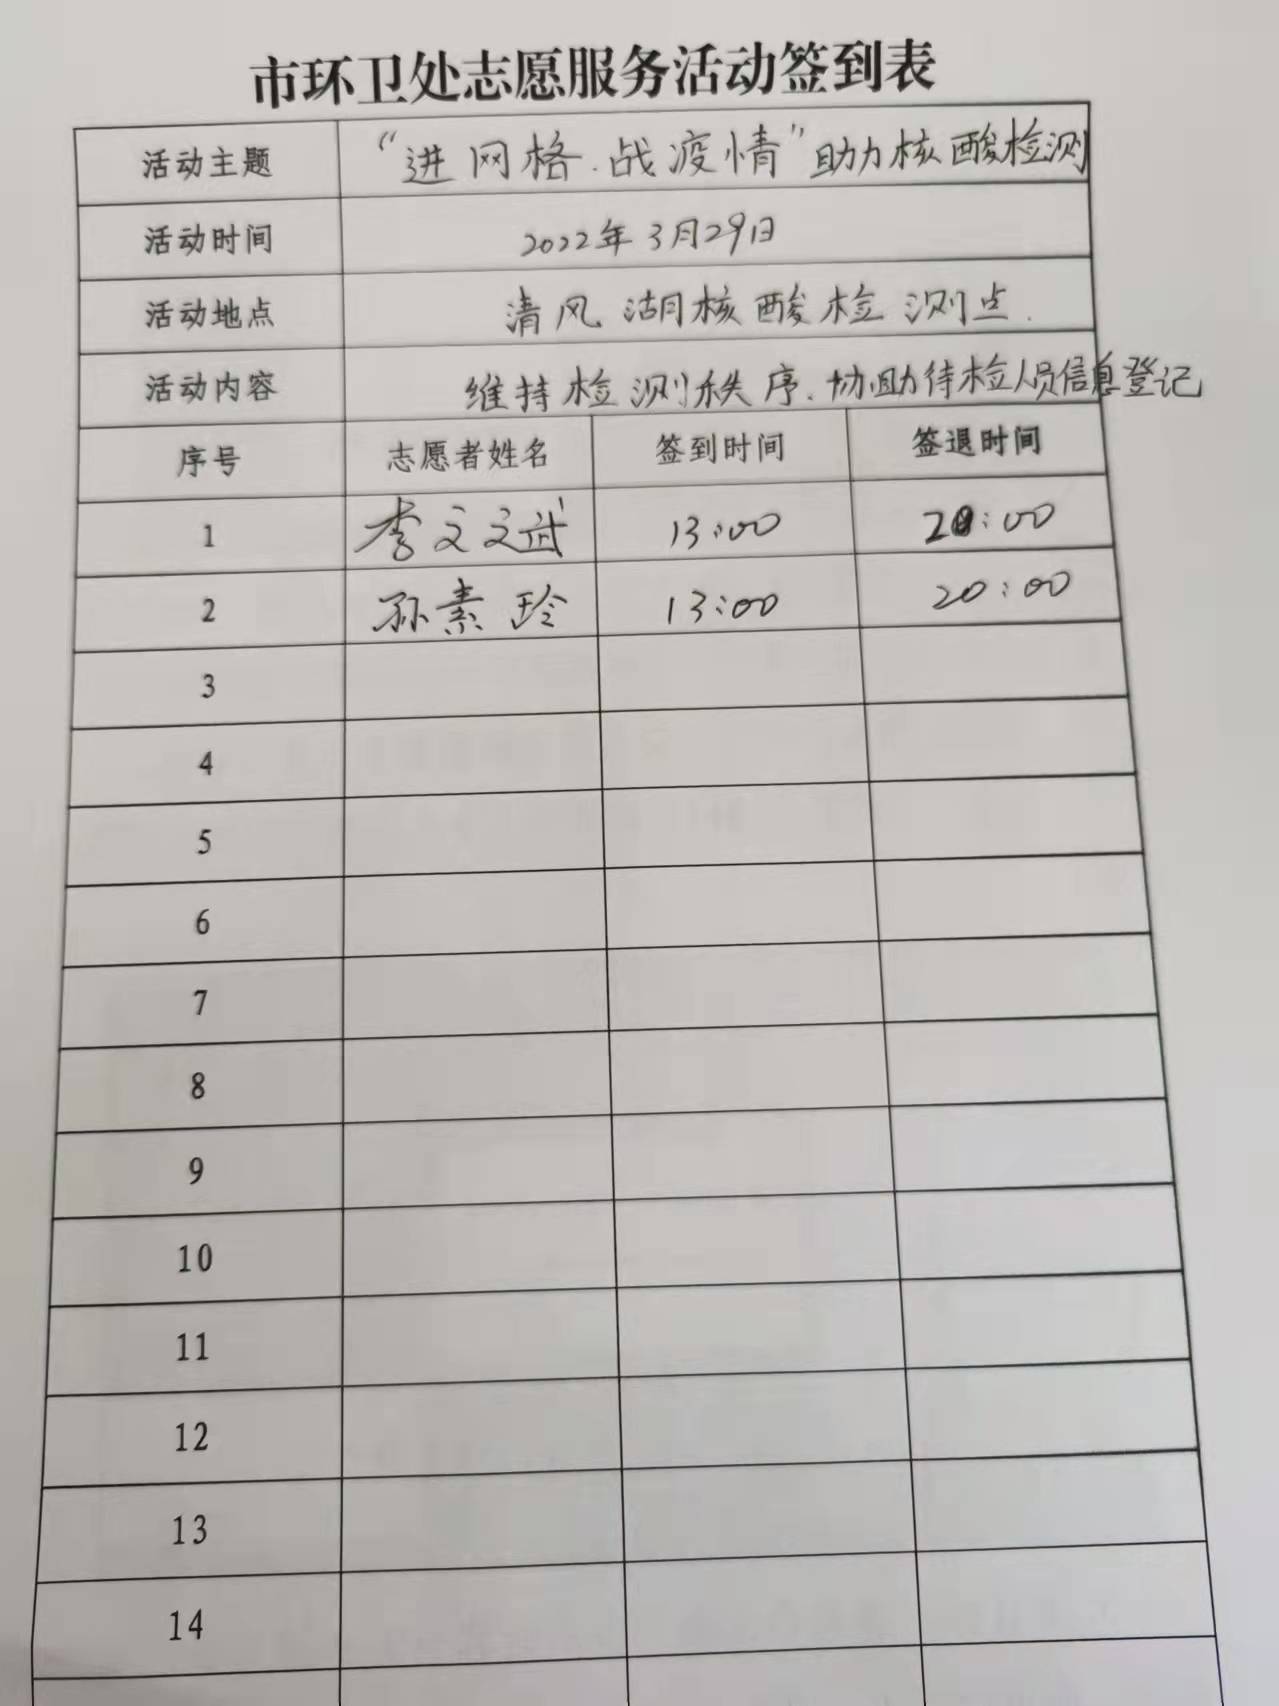 市环卫处志愿服务活动签到表
活动主题 “进网格.战疫情”助力核酸检测
活动时间 2022年3月29日
活动地点 清风湖核酸检测点.
活动内容 维持检测秩序、协助待检人员信息登记
序号 志愿者姓名 签到时间 签退时间
1 李文斌 13:00 20:00
2 孙素玲 13:00 20:00
3
4
5
6
7
8
9
10
11
12
13
14